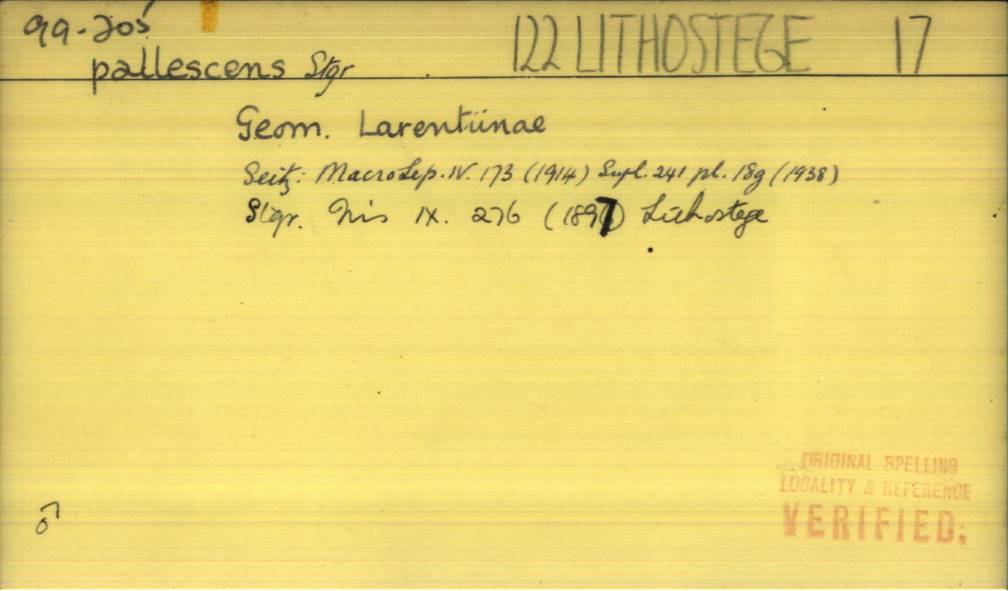 99-205
122 LITHOSTEGE 17
pallescens Stgr
Geom. Larentiinae
Seitz: MacroLep. IV. 173 (1914) Supl. 241 pl. 18g (1938)
Stgr. Iris IX. 276 (1897) Lithostege
ORIGINAL SPELLING
LOCALITY & REFERENCE
VERIFIED.
♂